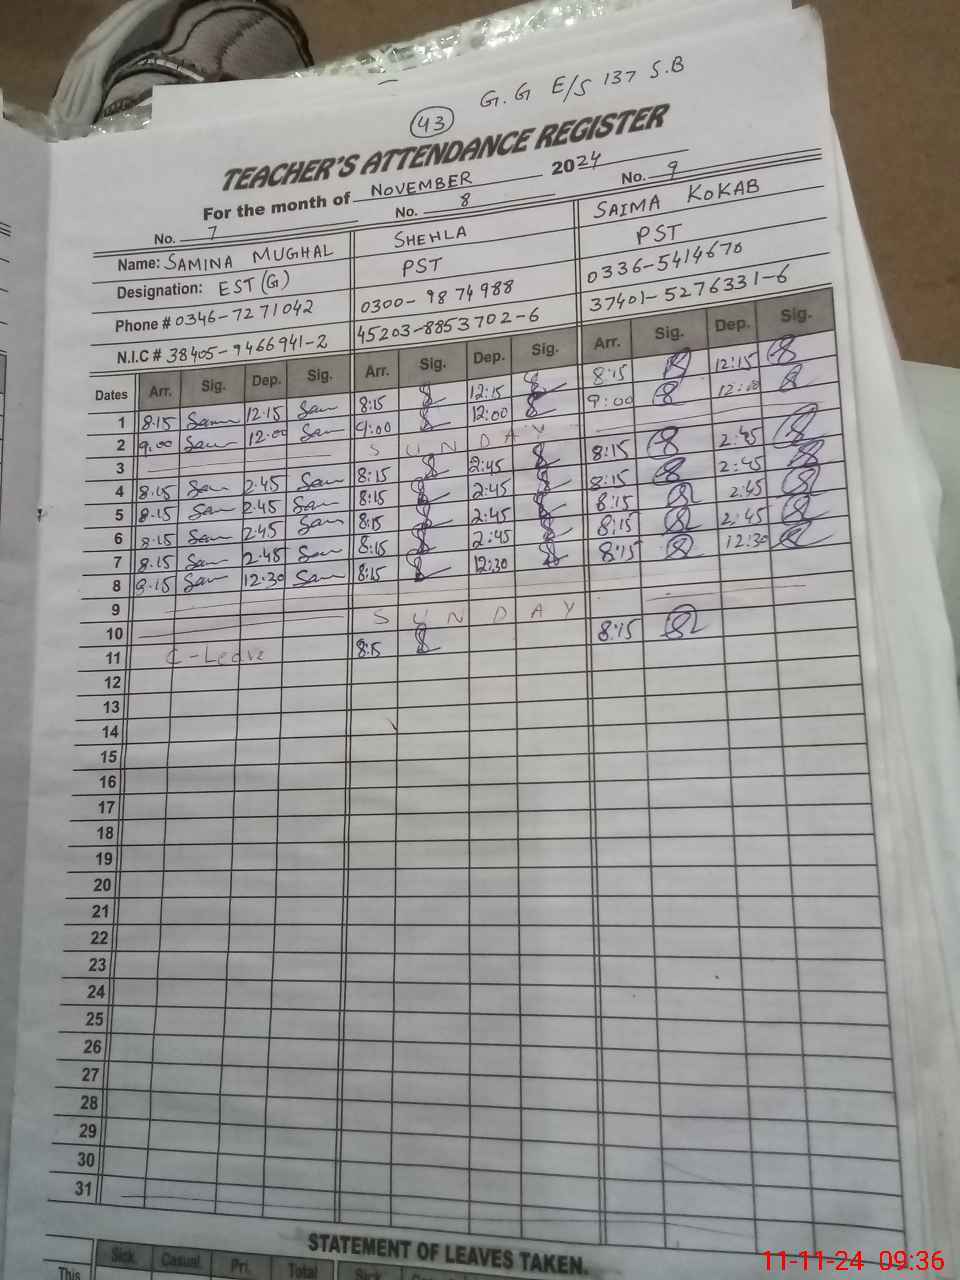 G.G E/S 137 S.B
43
TEACHER'S ATTENDANCE REGISTER
For the month of NOVEMBER 2024
No. 7 No. 8 No. 9
Name: SAMINA MUGHAL SHEHLA SAIMA KOKAB
Designation: EST (G) PST PST
Phone # 0346-7271042 0300-9874988 0336-5414670
N.I.C # 38405-9466941-2 45203-8853702-6 37401-5276331-6
Dates Arr. Sig. Dep. Sig. Arr. Sig. Dep. Sig. Arr. Sig. Dep. Sig.
1 8:15 Sam 12:15 Sam 8:15 12:15 8:15 12:15
2 9:00 Sam 12:00 Sam 9:00 12:00 9:00 12:00
3 SUNDAY
4 8:15 Sam 2:45 Sam 8:15 2:45 8:15 2:45
5 8:15 Sam 2:45 Sam 8:15 2:45 8:15 2:45
6 8:15 Sam 2:45 Sam 8:15 2:45 8:15 2:45
7 8:15 Sam 2:45 Sam 8:15 2:45 8:15 2:45
8 8:15 Sam 12:30 Sam 8:15 12:30 8:15 12:30
9
10 SUNDAY
11 C-Leave 8:15 8:15
12
13
14
15
16
17
18
19
20
21
22
23
24
25
26
27
28
29
30
31
STATEMENT OF LEAVES TAKEN.
This Sick Casual Pri. Total Sick
11-11-24 09:36